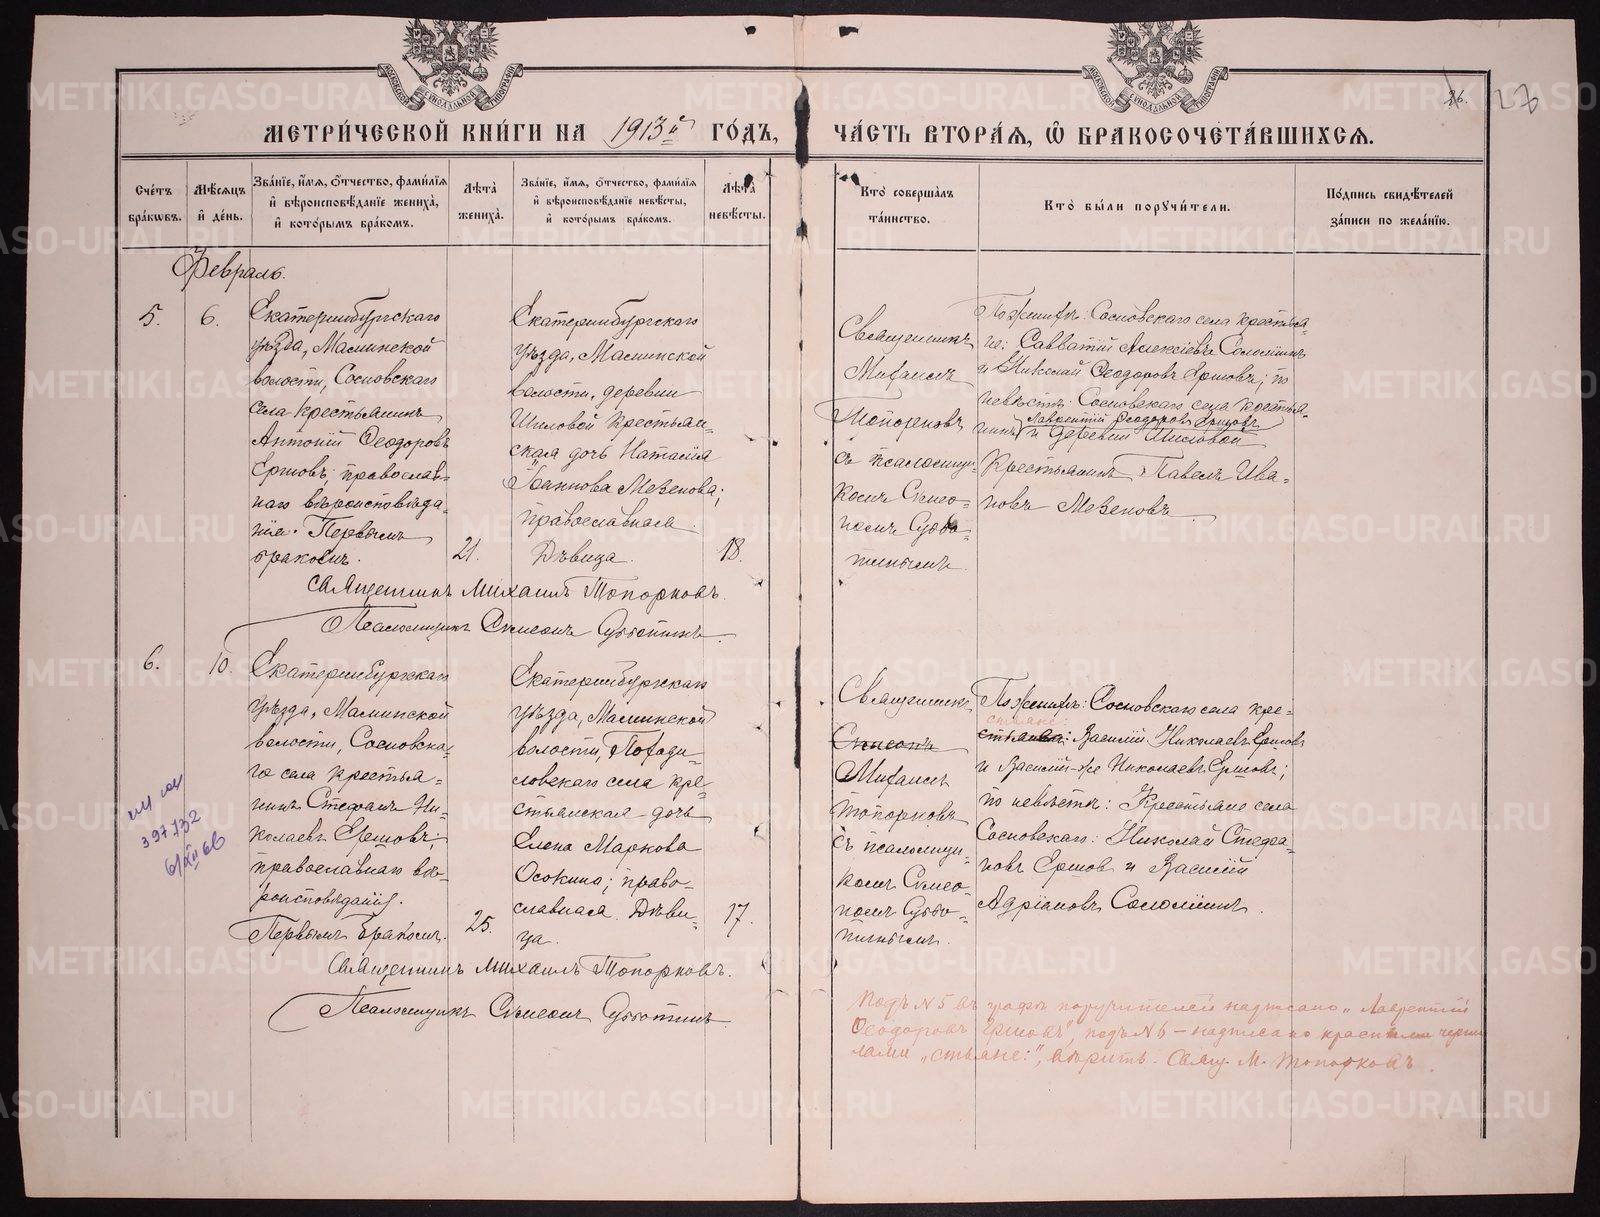 МЕТРИ́ЧЕСКОЙ КНИ́ГИ НА 1913й ГО́ДЪ, ЧА́СТЬ ВТОРА́Я, Ѡ҆ БРАКОСОЧЕТА́ВШИХСЯ.
26.
Сче́тъ бра́кѡвъ.
Мѣ́сяцъ и҆ де́нь.
Зва́нїе, и҆́мя, ѻ҆́тчество, фами́лїя и҆ вѣроисповѣ́данїе жениха̀, и҆ кото́рымъ бра́комъ.
Лѣ́та жениха̀.
Зва́нїе, и҆́мя, ѻ҆́тчество, фами́лїя и҆ вѣроисповѣ́данїе невѣ́сты, и҆ кото́рымъ бра́комъ.
Лѣ́та невѣ́сты.
Кто̀ соверша́лъ та́инство.
Кто̀ бы́ли порꙋчи́тели.
По́дпись свидѣ́телей за́писи по жела́нїю.
Февраль.
5.
6.
Екатеринбургскаго
уѣзда, Маминской
волости, Сосновскаго
села крестьянинъ
Антоній Ѳеодоровъ
Ершовъ; православ=
наго вѣроисповѣда=
нія. Первымъ
бракомъ.
21.
Екатеринбургскаго
уѣзда, Маминской
волости, деревни
Шиловой крестьян=
ская дочь Наталія
Іоаннова Мезенова;
православная.
Дѣвица.
18.
Священникъ
Михаилъ
Топорковъ
съ псаломщи=
комъ Симео=
номъ Суббо=
тинымъ.
По женихѣ: Сосновскаго села крестья=
не: Савватій Алексіевъ Соломинъ
и Николай Ѳеодоровъ Ершовъ; по
невѣстѣ: Сосновскаго села крестья=
Лаврентій Ѳеодоровъ Ершовъ
нинъ и деревни Шиловой
крестьянинъ Павелъ Ива=
новъ Мезеновъ.
Священникъ Михаилъ Топорковъ.
Псаломщикъ Симеонъ Субботинъ.
6.
10.
Екатеринбургскаго
уѣзда, Маминской
волости, Сосновска=
го села крестья=
нинъ Стефанъ Ни=
колаевъ Ершовъ;
православнаго вѣ=
роисповѣданія.
Первымъ бракомъ.
25.
Екатеринбургскаго
уѣзда, Маминской
волости, Походи=
ловскаго села кре=
стьянская дочь
Елена Маркова
Осокина; право=
славная. Дѣви=
ца.
17.
Священникъ
Симеонъ
Михаилъ
Топорковъ
съ псаломщи=
комъ Симео=
номъ Суббо=
тинымъ.
По женихѣ: Сосновскаго села кре=
стьяне:
Василій Николаевъ Ершовъ
и Василій-же Николаевъ Ершовъ;
по невѣстѣ: Крестьяне села
Сосновскаго: Николай Стефа=
новъ Ершов и Василій
Адріановъ Соломинъ.
Священникъ Михаилъ Топорковъ.
Псаломщикъ Симеонъ Субботинъ.
397732
6/XII 66
Подъ N 5 въ графѣ поручителей надписано „Лаврентій
Ѳеодоровъ Ершовъ", подъ N 6 - надписано красными черни
лами „стьяне:", вѣрить. Свящ. М. Топорковъ.
METRIKI.GASO-URAL.RU